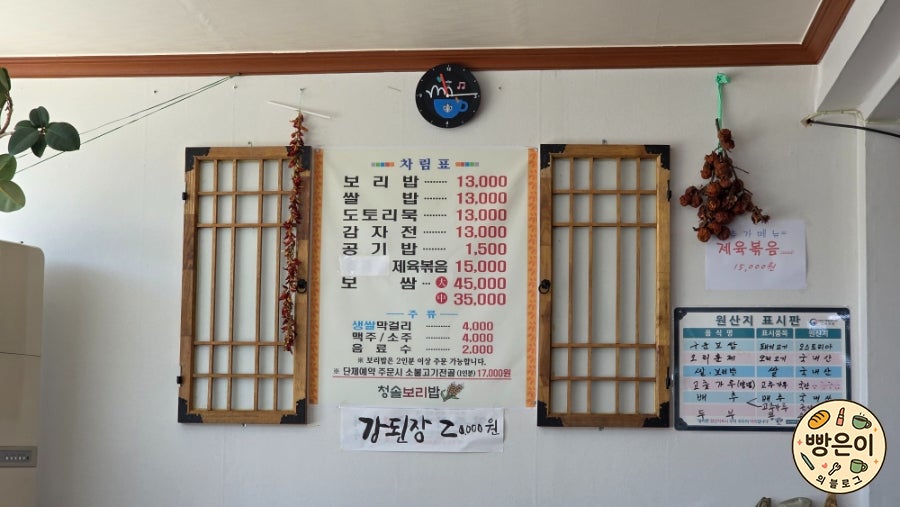 차림표
보리밥 ........ 13,000
쌀밥 ........ 13,000
도토리묵 ........ 13,000
감자전 ........ 13,000
공기밥 ........ 1,500
제육볶음 15,000
보쌈 ... 大 45,000
中 35,000
주류
생쌀막걸리 .......... 4,000
맥주/소주 .......... 4,000
음료수 .......... 2,000
※ 보리밥은 2인분 이상 주문 가능합니다.
※ 단체예약 주문시 소불고기전골(1인분) 17,000원
청솔보리밥
강된장 2,000원
메뉴
제육볶음
15,000원
원산지 표시판
음식명 표시품목 원산지
돼지고기 오스트리아
오리훈제 오리고기 국내산
쌀, 보리밥 쌀 국내산
고춧가루 국산
배추 배추 국내산
고춧가루
두부 콩
빵은이
의 블로그